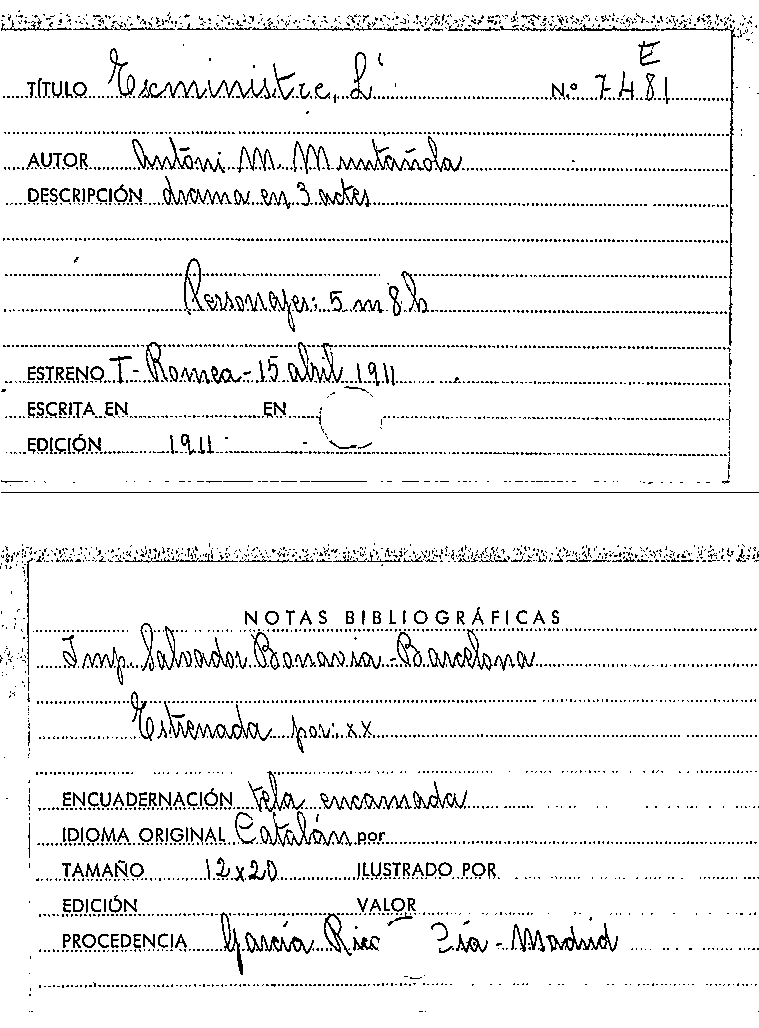 E
TÍTULO Exministre, L' N.º 7481
AUTOR Antóni M. Muntañola
DESCRIPCIÓN drama en 3 actes
Personajes: 5 m 8 h
ESTRENO T- Romea - 15 abril 1911
ESCRITA EN EN
EDICIÓN 1911
NOTAS BIBLIOGRÁFICAS
Imp. Salvador Bonavia - Barcelona
Estrenada por: xx
ENCUADERNACIÓN tela encarnada
IDIOMA ORIGINAL Catalán por
TAMAÑO 12x20 ILUSTRADO POR
EDICIÓN VALOR
PROCEDENCIA García Rico Cía - Madrid